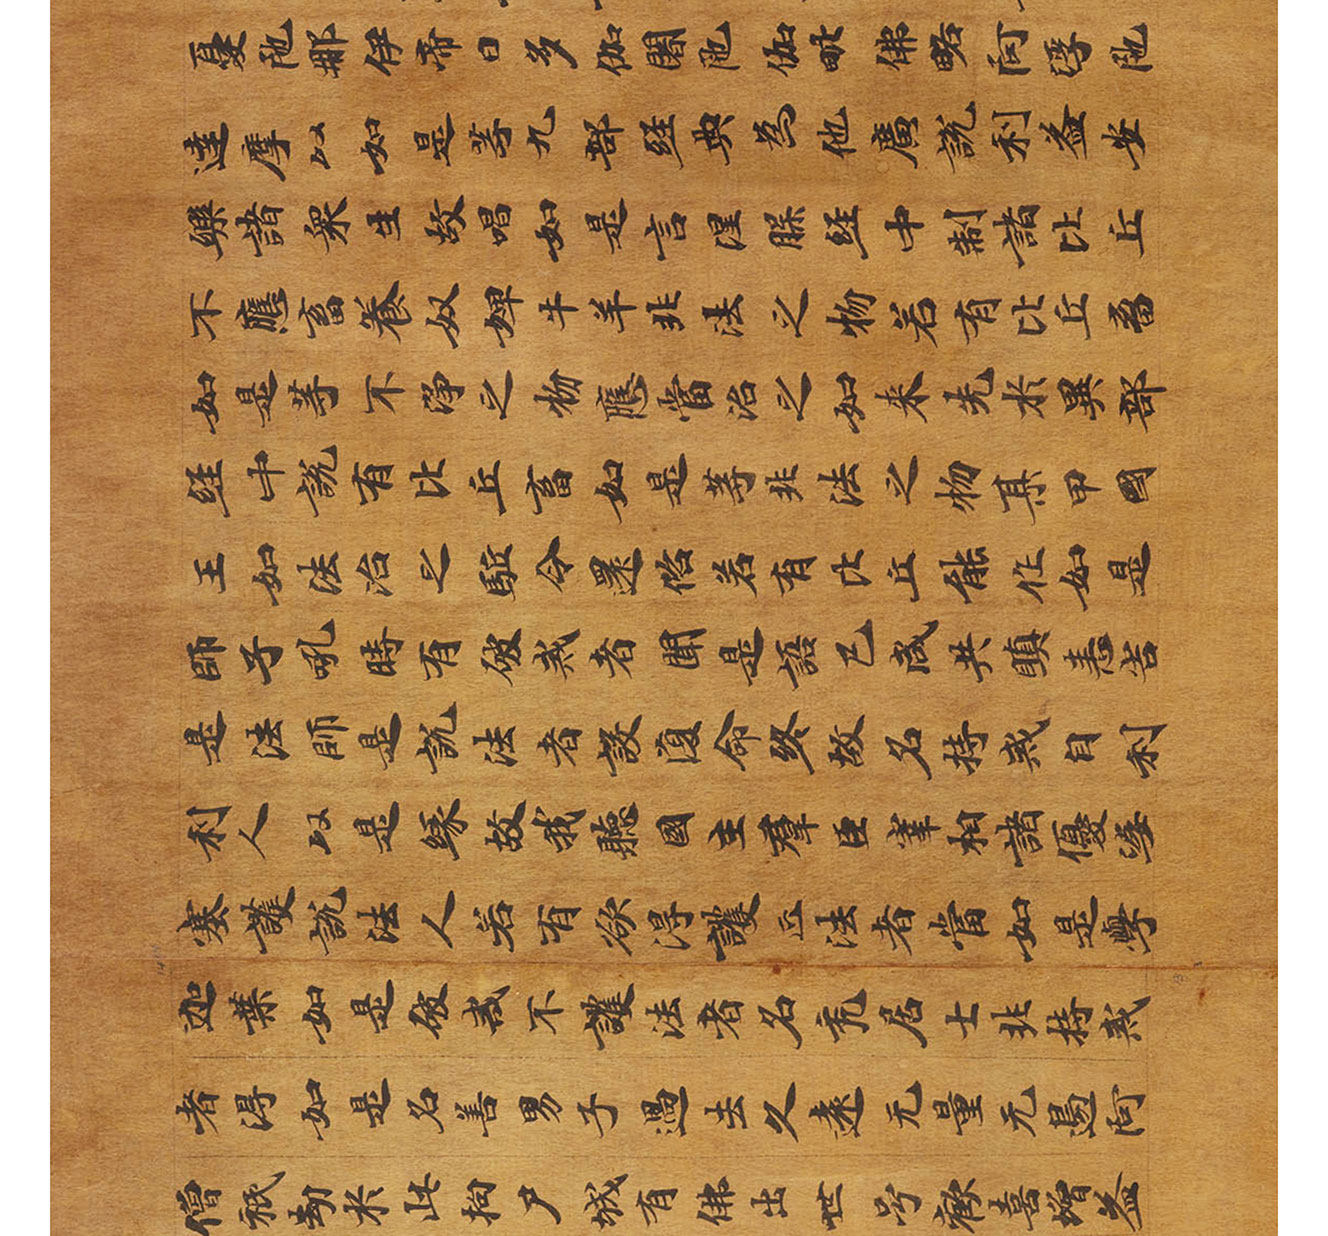 憂陁那伊帝曰多伽闍陁伽毗佛略阿浮陁
達摩以如是等九部經典為他廣說利益安
樂諸衆生故唱如是言涅槃經中制諸比丘
不應畜養奴婢牛羊非法之物若有比丘畜
如是等不淨之物應當治之如來先於異部
經中說有比丘畜如是等非法之物某甲國
王如法治之駈令還俗若有比丘能作如是
師子吼時有破戒者聞是語已咸共瞋恚害
是法師是說法者設復命終故名持戒自利
利人以是緣故我聽國主羣臣宰相諸優婆
塞護說法人若有欲得護正法者當如是學
迦葉如是破戒不護法者名禿居士非持戒
者得如是名善男子過去久遠无量无邊阿
僧祇劫於此拘尸城有佛出世号歡喜增益